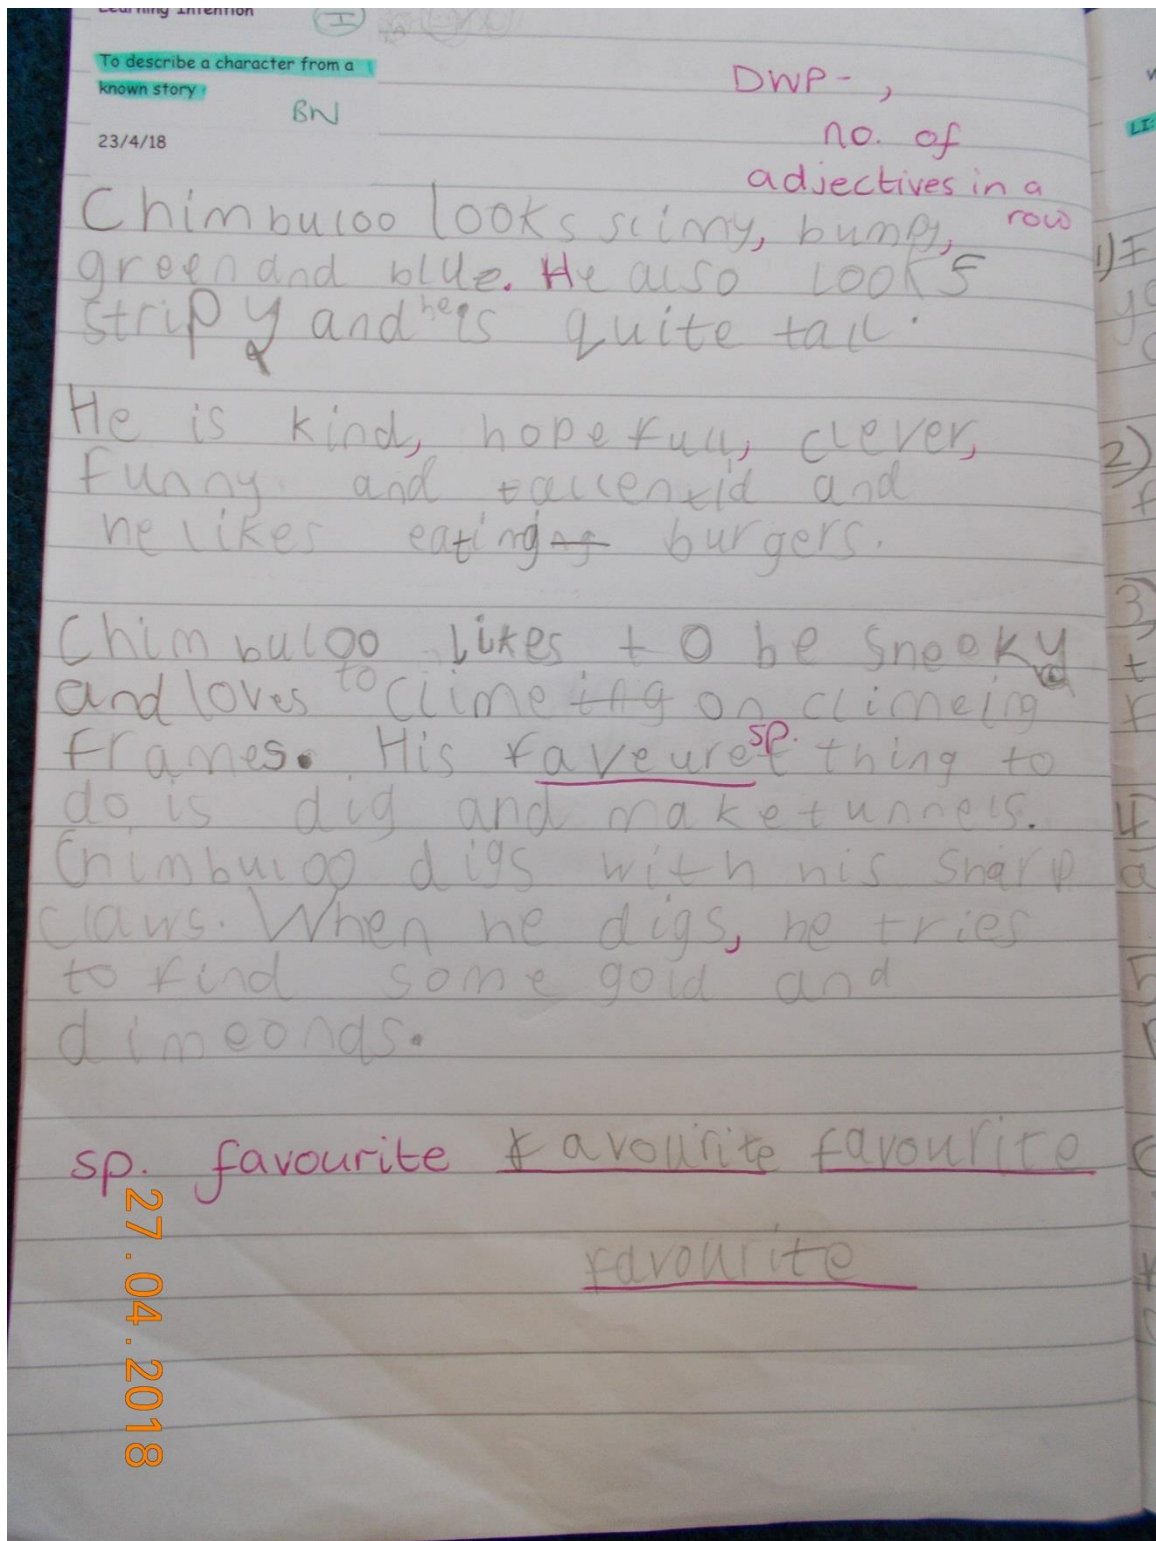 Learning Intention
I
To describe a character from a
known story
BW
23/4/18
DWP - ,
no. of
adjectives in a
row
Chimbuloo looks slimy, bumpy,
green and blue. He also looks
stripy and he is quite tall.
He is kind, hopefull, clever,
funny and tallentid and
he likes eating burgers.
Chimbuloo likes to be sneeky
and loves to clime ing on climeing
frames. His faveuret sp. thing to
do is dig and make tunnels.
Chimbuloo digs with his sharp
claws. When he digs, he tries
to find some gold and
dimeonds.
sp. favourite favourite favourite
favourite
27.04.2018
LI:
1) I
2)
3)
4
5